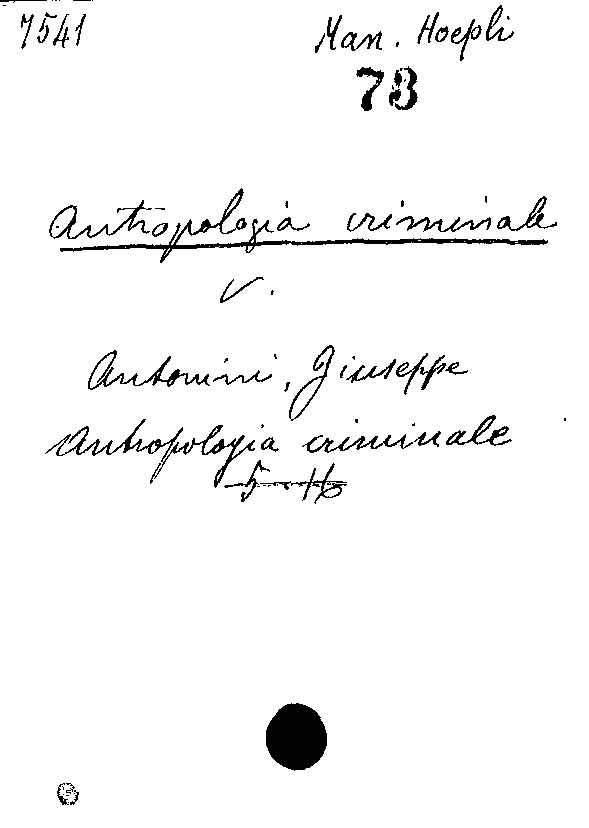 7541 Man. Hoepli
78
Antropologia criminale
V.
Antonini, Giuseppe
Antropologia criminale